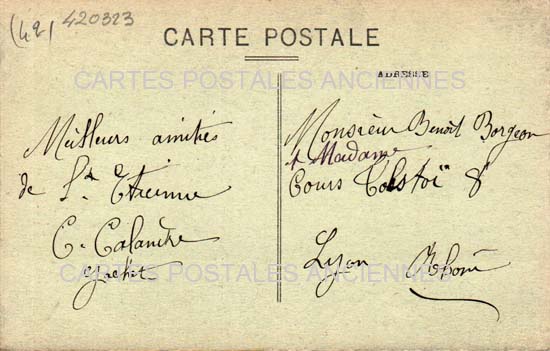 (42) 420323
CARTE POSTALE
CARTES POSTALES ANCIENNES
ADRESSE
Meilleurs amitiés
de St. Etienne
C. Calandre
Monsieur Benoit Borgeon
et Madame
Cours Tolstoï 8
Lyon Rhône
CARTES POSTALES ANCIENNES